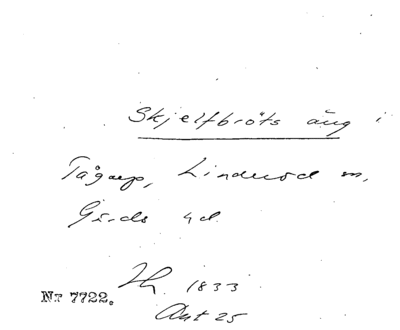 Skjelfbröts äng i
Tågarp, Linderöd m,
Gärds hd.
1833
Akt 25
Nr 7722.